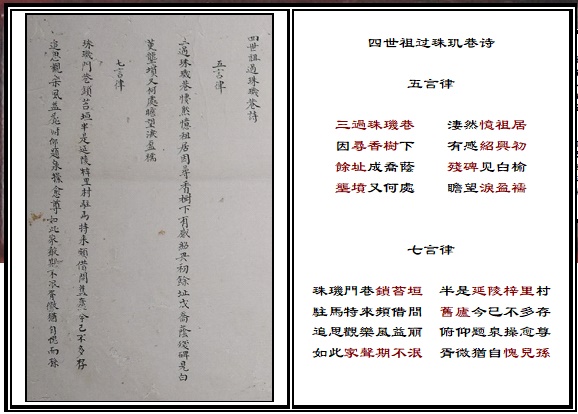 四世祖過珠璣巷詩
五言律
三過珠璣巷悽然憶祖居因尋香樹下有感紹興初餘址成喬蔭殘碑見白
壟墳又何處瞻望淚盈襦
七言律
珠璣門巷鎖苔垣半是延陵梓里村駐馬特来頻借問舊廬今已不多存
追思觀樂風益麗俯仰題泉操愈尊如此家聲期不泯胥微猶自愧孫
四世祖过珠玑巷诗
五言律
三過珠璣巷 淒然憶祖居
因尋香樹下 有感紹興初
餘址成喬蔭 殘碑見白榆
壟墳又何處 瞻望淚盈襦
七言律
珠璣門巷鎖苔垣 半是延陵梓里村
駐馬特来頻借問 舊廬今已不多存
追思觀樂風益麗 俯仰題泉操愈尊
如此家聲期不泯 胥微猶自愧兒孫